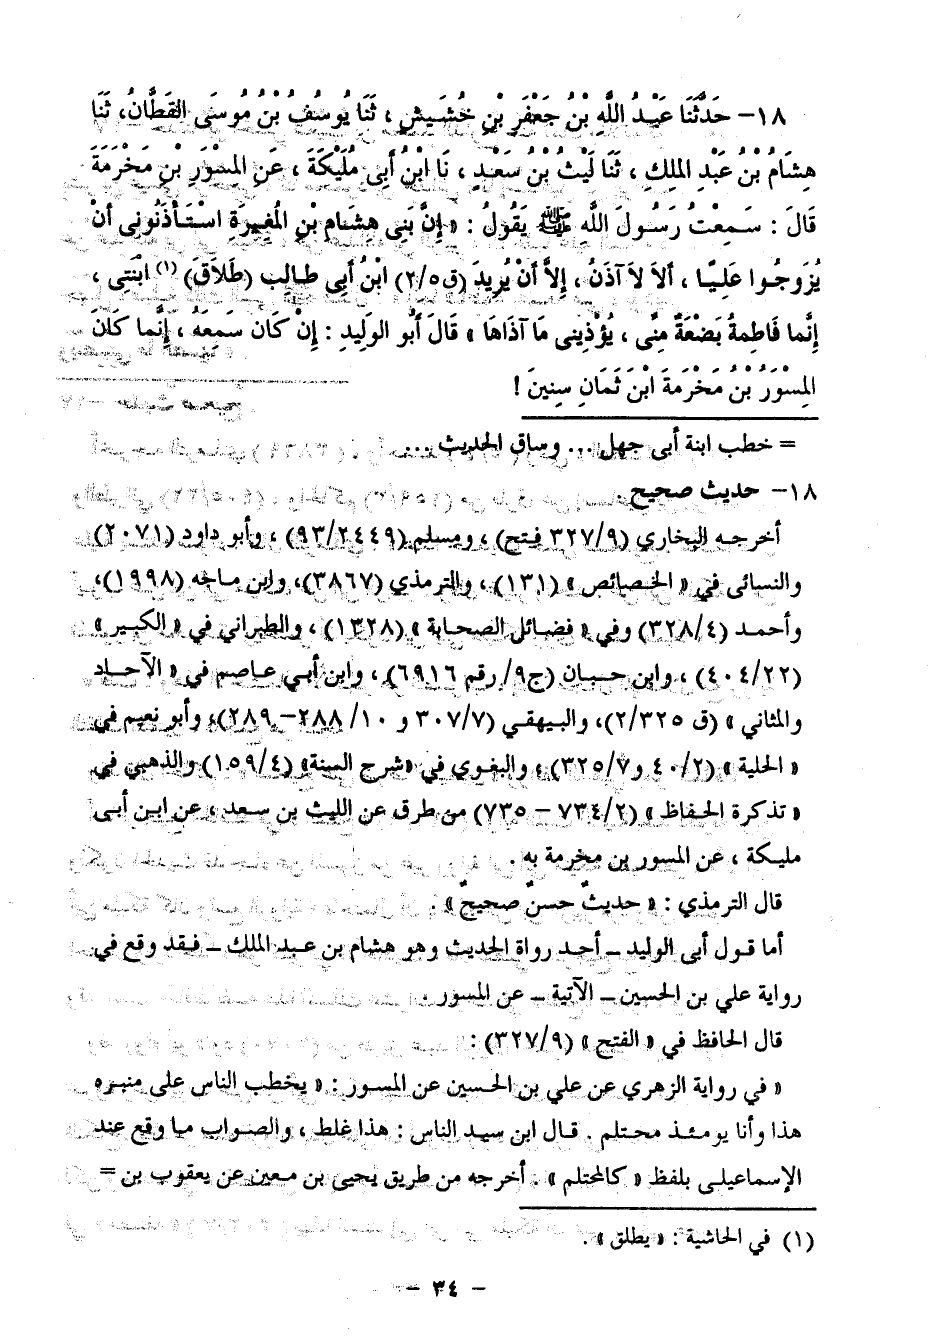 ١٨- حَدَّثَنَا عَبْدُ اللَّهِ بْنُ جَعْفَرِ بْنِ خُشَيشٍ ، ثَنَا يُوسُفُ بْنُ مُوسَى القَطَّانُ، ثَنَا
هِشَامُ بْنُ عَبْدِ المَلِكِ ، ثَنَا لَيْثُ بْنُ سَعْدٍ ، نَا ابْنُ أَبِى مُلَيْكَةَ ، عَنِ المِسْوَرِ بْنِ مَخْرَمَةَ
قَالَ : سَمِعْتُ رَسُولَ اللَّهِ ﷺ يَقُولُ : « إِنَّ بَنِى هِشَامِ بْنِ المُغِيرَةِ اسْتَأْذَنُونِى أَنْ
يُزَوِّجُوا عَلِيًّا ، أَلاَ لاَ آذَنُ ، إِلاَّ أَنْ يُرِيدَ (ق٢/٥) ابْنُ أَبِى طَالِبٍ (طَلاَقَ) (١) ابْنَتِى ،
إِنَّما فَاطِمَةُ بَضْعَةٌ مِنِّى ، يُؤْذِينِى مَا آذَاهَا » قَالَ أَبُو الوَلِيدِ : إِنْ كَانَ سَمِعَهُ ، إِنَّما كَانَ
المِسْوَرُ بْنُ مَخْرَمَةَ ابْنَ ثَمَانِ سِنِينَ !
= خطب ابنة أبى جهل ... وساق الحديث ...
١٨- حديث صحيح
أخرجه البخاري (٣٢٧/٩ فتح) ، ومسلم (٩٣/٢٤٤٩) ، وأبو داود (٢٠٧١)
والنسائى في « الخصائص » (١٣١) ، والترمذي (٣٨٦٧)، وابن ماجه (١٩٩٨)،
وأحمد (٣٢٨/٤) وفي « فضائل الصحابة » (١٣٢٨) ، والطبراني في « الكبير »
(٤٠٤/٢٢) ، وابن حبان (ج٩/ رقم ٦٩١٦) ، وابن أبي عاصم في « الآحاد
والمثاني » (ق ٢/٣٢٥)، والبيهقي (٣٠٧/٧ و ١٠/ ٢٨٨- ٢٨٩)، وأبو نعيم في
« الحلية » (٤٠/٢ و٣٢٥/٧) ، والبغوي في «شرح السنة» (١٥٩/٤) والذهبي في
« تذكرة الحفاظ » (٧٣٤/٢ - ٧٣٥) من طرق عن الليث بن سعد ، عن ابن أبى
مليكة ، عن المسور بن مخرمة به .
قال الترمذي : « حديثٌ حسنٌ صحيحٌ » .
أما قول أبى الوليد ــ أحد رواة الحديث وهو هشام بن عبد الملك ــ فقد وقع في
رواية علي بن الحسين ــ الآتية ــ عن المسور .
قال الحافظ في « الفتح » (٣٢٧/٩) :
« في رواية الزهري عن علي بن الحسين عن المسور : « يخطب الناس على منبره
هذا وأنا يومئذ محتلم . قال ابن سيد الناس : هذا غلط ، والصواب ما وقع عند
الإسماعيلى بلفظ « كالمحتلم » . أخرجه من طريق يحيى بن معين عن يعقوب بن =
(١) في الحاشية : « يطلق » .
- ٣٤ -